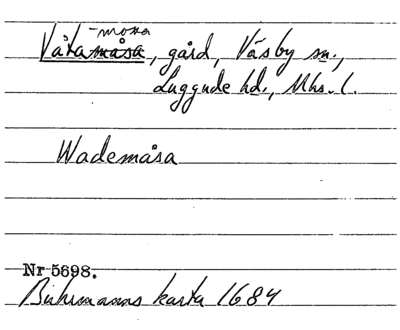 -mossa
Våtamåsa, gård, Väsby sn.,
Luggude hd., Mhs. l.
Wademåsa
Nr 5698.
Buhrmanns karta 1684